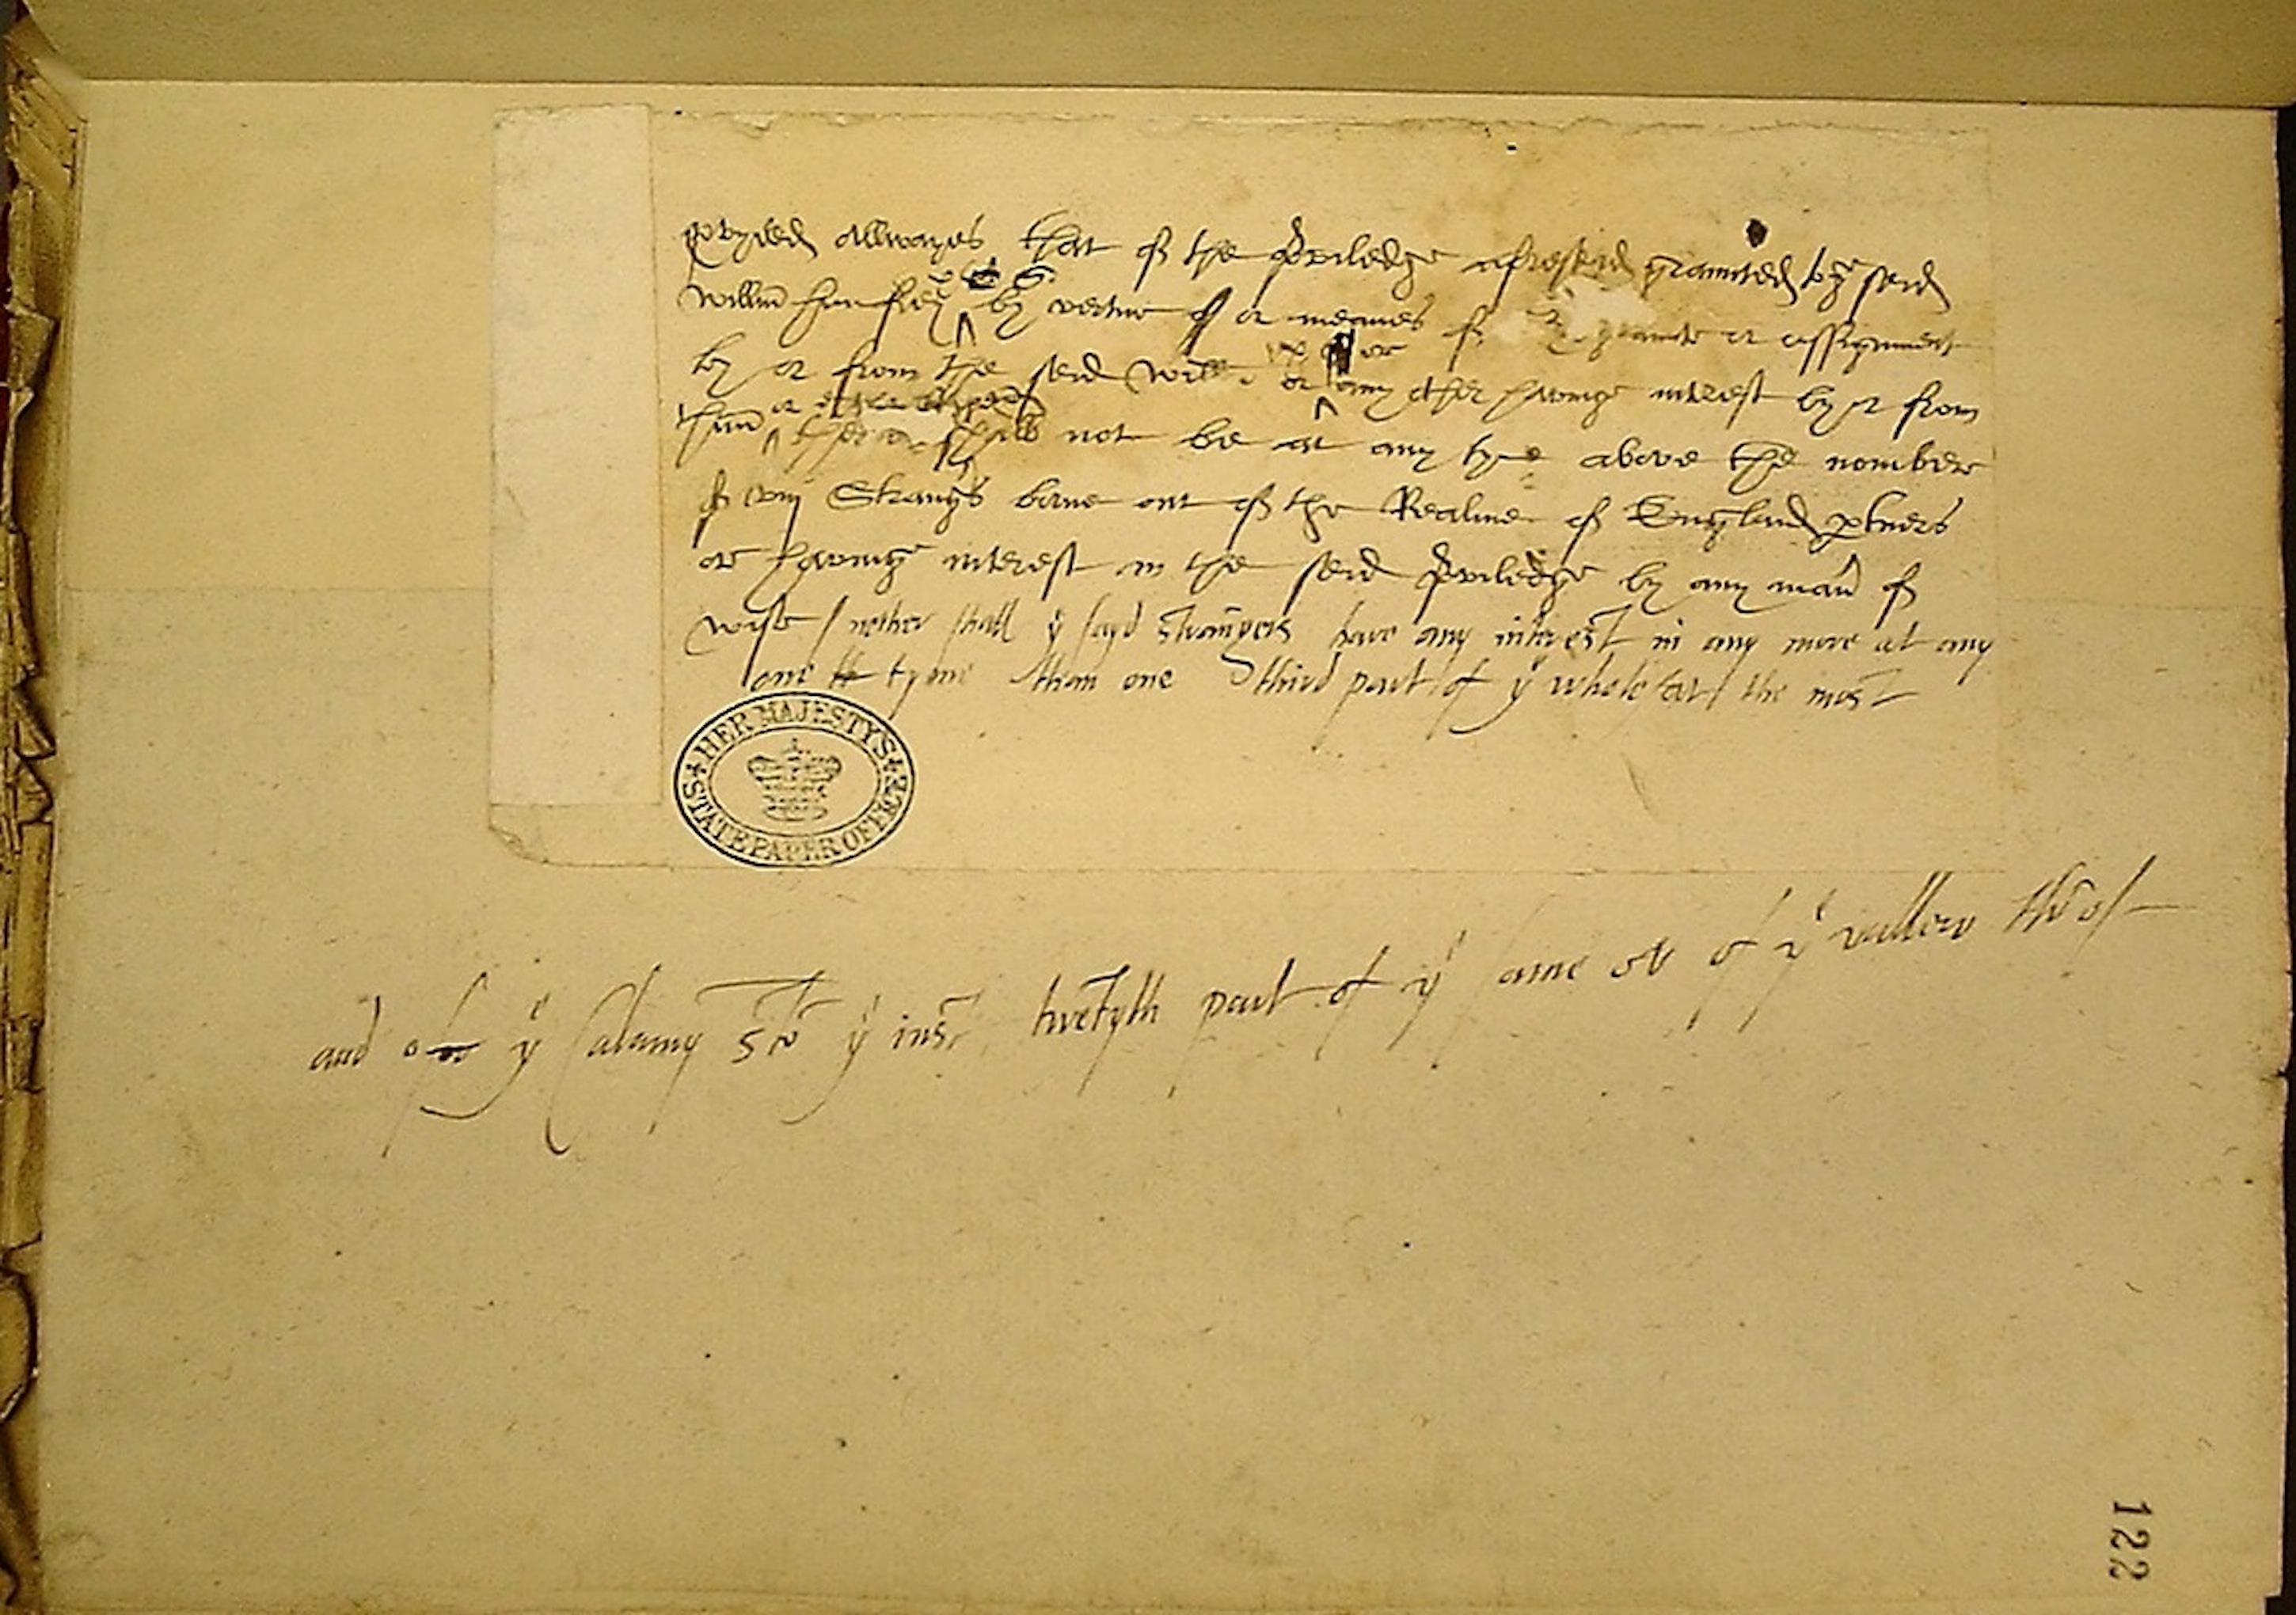 provyded allwayes that of the privledge aforeseid graunted to ye seid
Willm Humfrey by vertue of or meanes of graunte or assignment
by or from the seid Will or any other havinge interest by or from
hym or shall not be at any tyme above the nomber
of viij Straungs borne out of the Realme of England ptners
or havinge interest in the seid privledge by any man of
wise / nether shall ye sayd strangers have any interest in any more at any
one tyme than one third part of ye whole at the most
HER MAJESTYS STATE PAPER OFFICE
and of ye Calamy ye twetyth part of ye same or of ye vallew therof
122